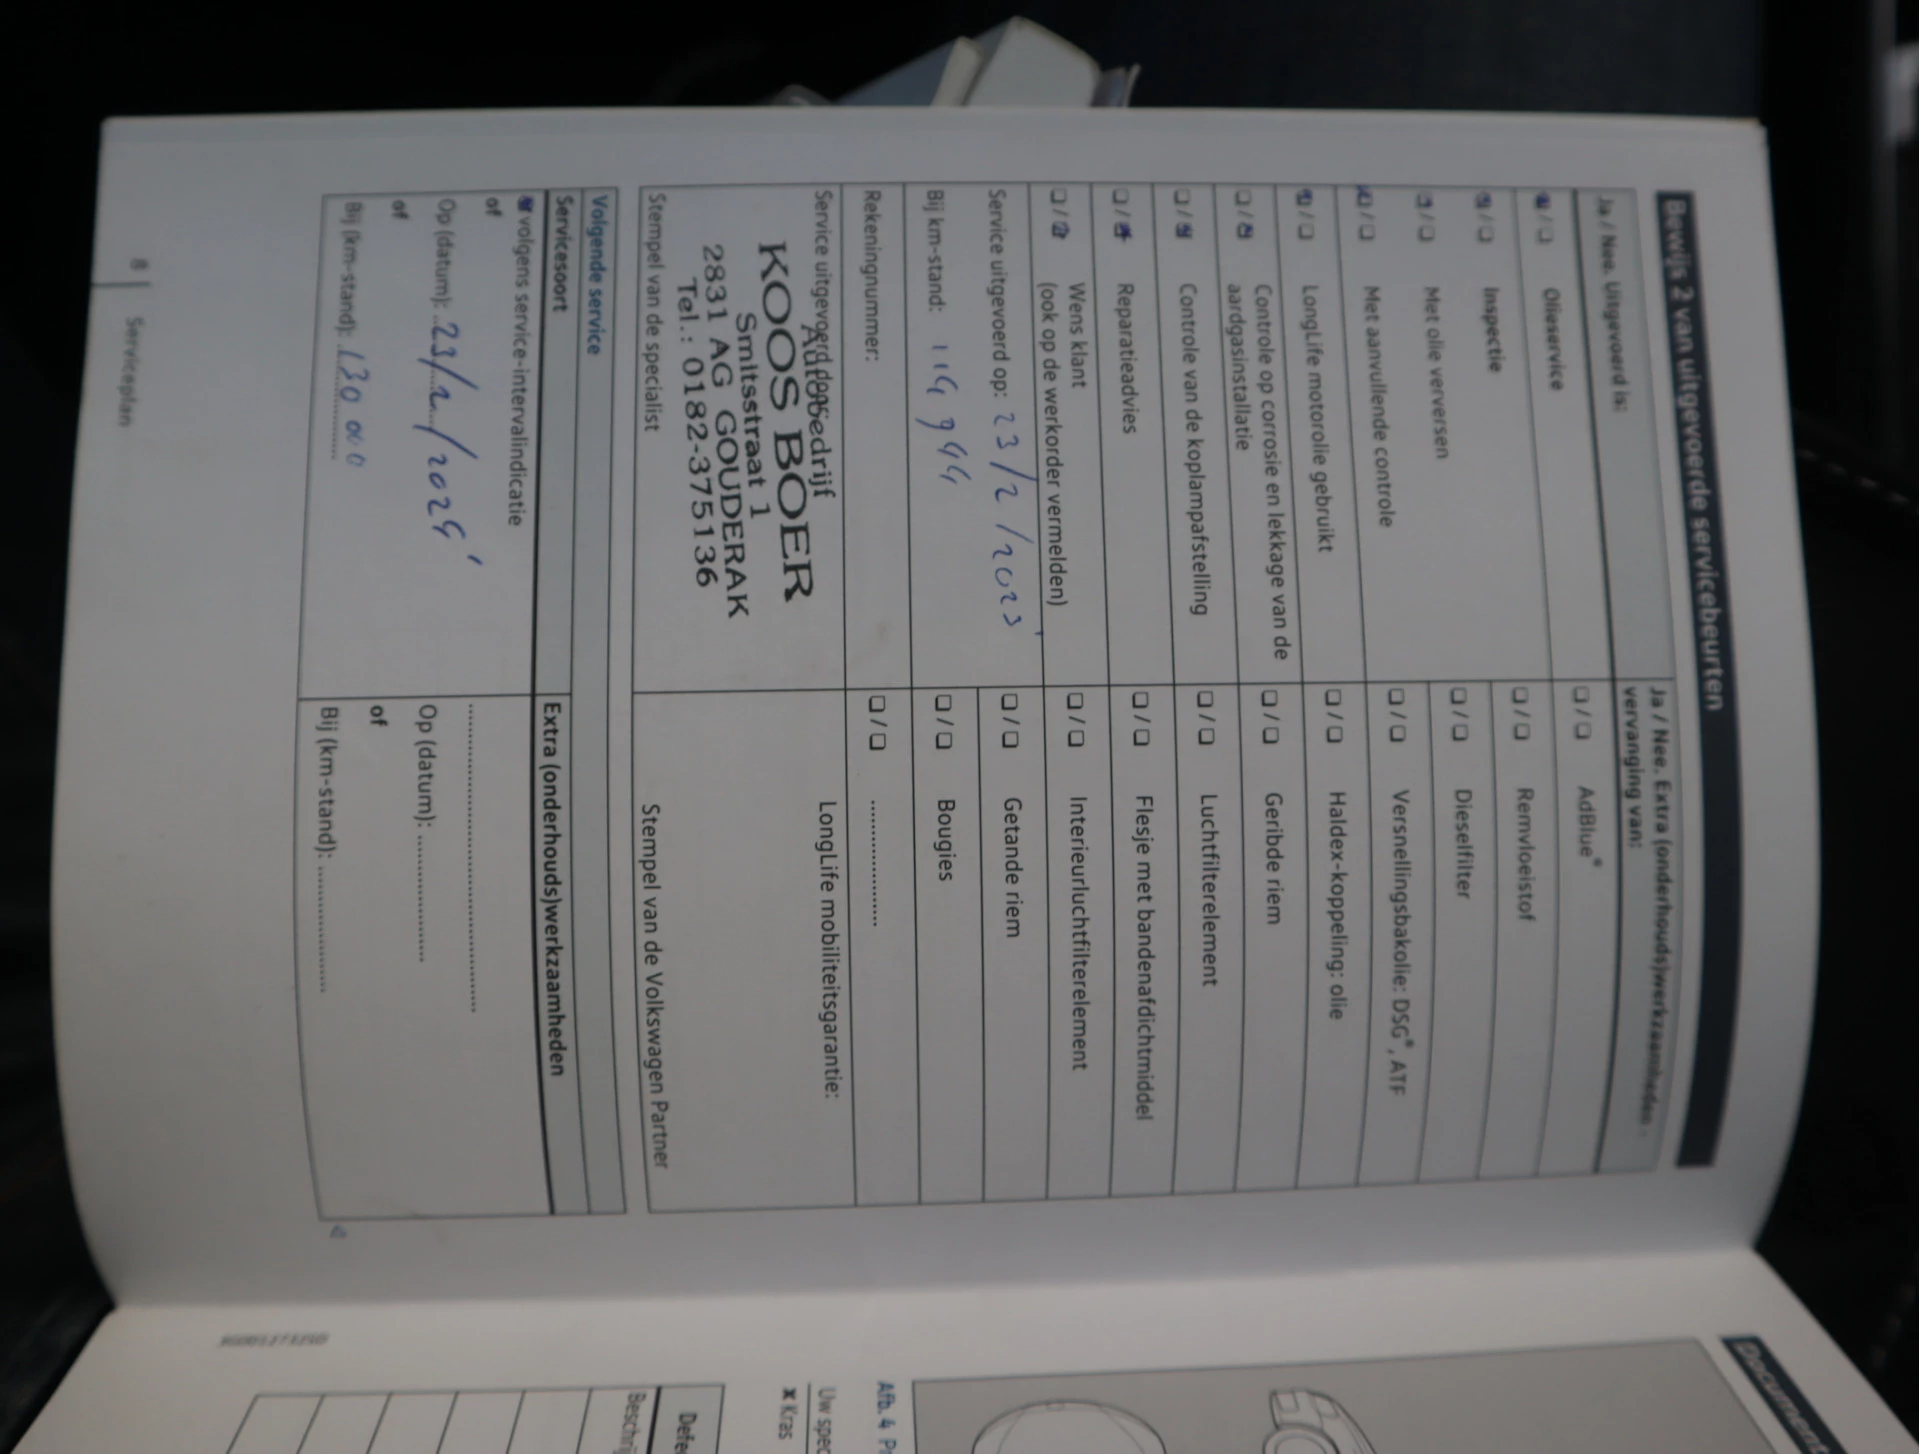 Bewijs 2 van uitgevoerde servicebeurten
Ja / Nee. Uitgevoerd is:
☒/☐ Olieservice
☒/☐ Inspectie
☒/☐ Met olie verversen
☒/☐ Met aanvullende controle
☒/☐ LongLife motorolie gebruikt
☐/☒ Controle op corrosie en lekkage van de
aardgasinstallatie
☐/☒ Controle van de koplampafstelling
☐/☒ Reparatieadvies
☐/☒ Wens klant
(ook op de werkorder vermelden)
Service uitgevoerd op: 23/2/2023
Bij km-stand:
Rekeningnummer:
Service uitgevoerd door:
Autobedrijf
KOOS BOER
Smitsstraat 1
2831 AG GOUDERAK
Tel.: 0182-375136
Stempel van de specialist
Ja / Nee. Extra (onderhouds)werkzaamheden -
vervanging van:
☐/☐ AdBlue®
☐/☐ Remvloeistof
☐/☐ Dieselfilter
☐/☐ Versnellingsbakolie: DSG®, ATF
☐/☐ Haldex-koppeling: olie
☐/☐ Geribde riem
☐/☐ Luchtfilterelement
☐/☐ Flesje met bandenafdichtmiddel
☐/☐ Interieurluchtfilterelement
☐/☐ Getande riem
☐/☐ Bougies
☐/☐ ................
LongLife mobiliteitsgarantie:
Stempel van de Volkswagen Partner
Volgende service
Servicesoort
☒ volgens service-intervalindicatie
of
Op (datum): 23/2/2024
of
Bij (km-stand): 130 000
Extra (onderhouds)werkzaamheden
........................................
Op (datum): ................
of
Bij (km-stand): ................
8 | Serviceplan
Document
Afb. 4
Uw spec
x Kras
Defe
Beschrij